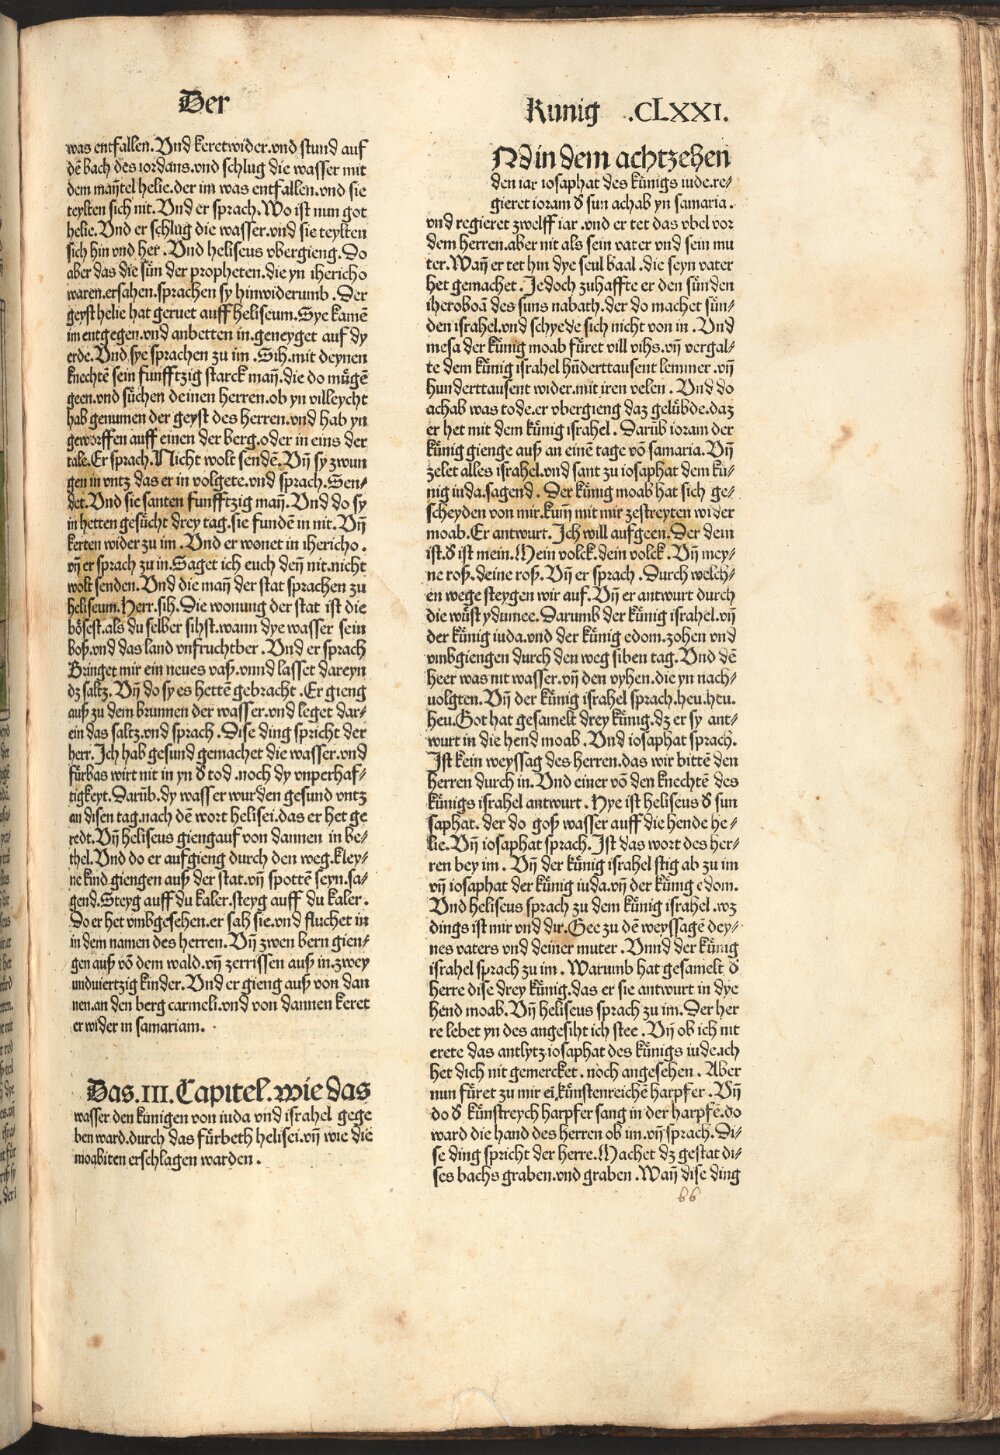 Der
Kunig .CLXXI.
was entfallen. Vnd keret wider. vnd stund auf
dẽ bach des iordans. vnd schlug die wasser mit
dem mañtel helie. der im was entfallen. vnd sie
teylten sich nit. Vnd er sprach. Wo ist nun got
helie. Vnd er schlug die wasser. vnd sie teylten
sich hin vnd her. Vnd heliseus vbergieng. Do
aber das die sün der propheten. die yn ihericho
waren. ersahen. sprachen sy hinwiderumb. Der
geyst helie hat geruet auff heliseum. Sye kamẽ
im entgegen. vnd anbetten in. geneyget auf dy
erde. Vnd sye sprachen zu im. Sih. mit deynen
knechtẽ sein funfftzig starck mañ. die do mügẽ
geen. vnd süchen deinen herren. ob yn villeycht
hab genumen der geyst des herren. vnd hab yn
geworffen auff einen der berg. oder in eins der
tale. Er sprach. Nicht wolt sendẽ. Vñ sy zwun
gen in vntz das er in volgete. vnd sprach. Sen⸗
det. Vnd sie santen funfftzig mañ. Vnd do sy
in hetten gesücht drey tag. sie fundẽ in nit. Vñ
kerten wider zu im. Vnd er wonet in ihericho.
vñ er sprach zu in. Saget ich euch deñ nit. nicht
wolt senden. Vnd die mañ der stat sprachen zu
heliseum. Herr. sih. Die wonung der stat ist die
bösest. als du selber sihst. wann dye wasser sein
boß. vnd das land vnfruchtber. Vnd er sprach
Bringet mir ein neues vaß. vnnd lasset dareyn
dz saltz. Vñ do sy es hettẽ gebracht. Er gieng
auß zu dem brunnen der wasser. vnd leget dar⸗
ein das saltz. vnd sprach. Dise ding spricht der
herr. Ich hab gesund gemachet die wasser. vnd
fürbas wirt nit in yn d̕ tod. noch dy vnperhaf⸗
tigkeyt. Darüb. dy wasser wurden gesund vntz
an disen tag. nach dẽ wort helisei. das er het ge
redt. Vñ heliseus gieng auf von dannen in be⸗
thel. Vnd do er aufgieng durch den weg. kley⸗
ne kind giengen auß der stat. vñ spottẽ seyn. sa⸗
gend. Steyg auff du kaler. steyg auff du kaler.
Do er het vmbgesehen. er sah sie. vnd fluchet in
in dem namen des herren. Vñ zwen bern gien⸗
gen auß võ dem wald. vñ zerrissen auß in. zwey
undviertzig kinder. Vnd er gieng auß von dan
nen. an den berg carmeli. vnd von dannen keret
er wider in samariam.
Das .III. Capitel. wie das
wasser den kunigen von iuda vnd israhel gege
ben ward. durch das fürbeth helisei. vñ wie die
moabiten erschlagen warden.
Nd in dem achtzehen
den iar iosaphat des künigs iude. re⸗
gieret ioram d̕ sun achab yn samaria.
vnd regieret zwelff iar. vnd er tet das vbel vor
dem herren. aber nit als sein vater vnd sein mu
ter. Wañ er tet hin dye seul baal. die seyn vater
het gemachet. Jedoch zuhaffte er den sünden
iheroboã des suns nabath. der do machet sün⸗
den israhel. vnd schyede sich nicht von in. Vnd
mesa der künig moab füret vill vihs. vñ vergal⸗
te dem künig israhel hũderttausent lemmer. vñ
hunderttausent wider. mit iren velen. Vnd do
achab was tode. er vbergieng daz gelübde. daz
er het mit dem künig israhel. Darüb ioram der
künig gienge auß an einẽ tage võ samaria. Vñ
zelet alles israhel. vnd sant zu iosaphat dem kü⸗
nig iuda. sagend. Der künig moab hat sich ge⸗
scheyden von mir. kum mit mir zestreyten wider
moab. Er antwurt. Ich will aufgeen. Der dein
ist. d̕ ist mein. Mein volck. dein volck. Vñ mey⸗
ne roß. deine roß. Vñ er sprach. Durch welch⸗
en wege steygen wir auf. Vñ er antwurt durch
die wüst ydumee. Darumb der künig israhel. vñ
der künig iuda. vnd der künig edom. zohen vnd
vmbgiengen durch den weg siben tag. Vnd dẽ
heer was nit wasser. vñ den vyhen. die yn nach⸗
uolgten. Vñ der künig israhel sprach. heu. heu.
heu. Got hat gesamelt drey künig. dz er sy ant⸗
wurt in die hend moab. Vnd iosaphat sprach.
Ist kein weyssag des herren. das wir bittẽ den
herren durch in. Vnd einer võ den knechtẽ des
künigs israhel antwurt. Hye ist heliseus d̕ sun
saphat. der do goß wasser auff die hende he⸗
lie. Vñ iosaphat sprach. Ist das wort des her⸗
ren bey im. Vñ der künig israhel stig ab zu im
vñ iosaphat der künig iuda. vñ der künig edom.
Vnd heliseus sprach zu dem künig israhel. wz
dings ist mir vnd dir. Gee zu dẽ weyssagẽ dey⸗
nes vaters vnd deiner muter. Vnnd der künig
israhel sprach zu im. Warumb hat gesamelt d̕
herre dise drey künig. das er sie antwurt in dye
hend moab. Vñ heliseus sprach zu im. Der her
re lebet yn des angesiht ich stee. Vñ ob ich nit
erete das antlytz iosaphat des künigs iude. ich
het dich nit gemercket. noch angesehen. Aber
nun füret zu mir eĩ. künstenreichẽ harpfer. Vñ
do d̕ künstreych harpfer sang in der harpfẽ. do
ward die hand des herren ob im. vñ sprach. Di⸗
se ding spricht der herre. Machet dz gestat di⸗
ses bachs graben. vnd graben. Wañ dise ding
66